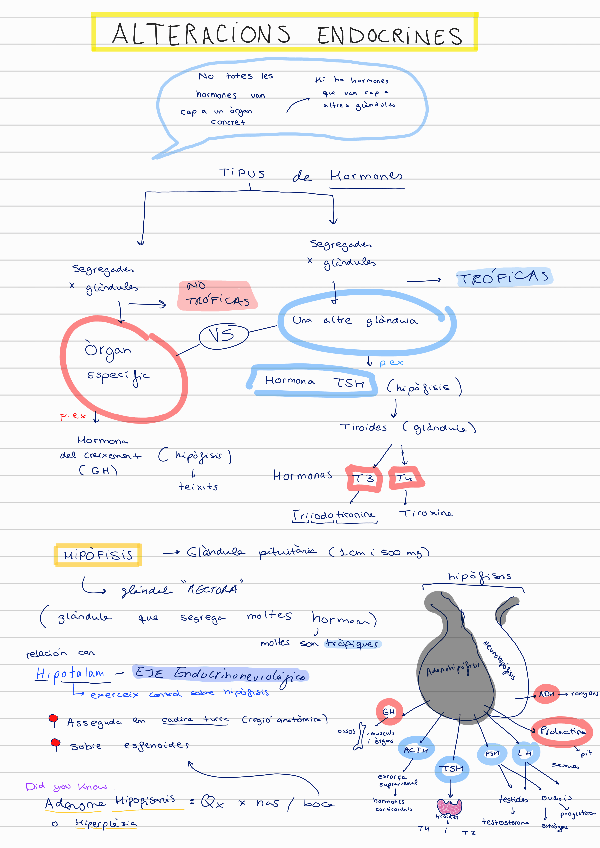 ALTERACIONS ENDOCRINES
No totes les
hormones van
cap a un òrgan
concret
Hi ha hormones
que van cap a
altres glàndules
TIPUS de Hormones
Segregades
x glàndules
NO
TRÓFICAS
Segregades
x glàndules
TRÓFICAS
Òrgan
específic
VS
Una altre glàndula
p.ex
Hormona TSH (hipòfisis)
Tiroides (glàndula)
Hormones T3 T4
Triiodotironine Tiroxina
p.ex
Hormona
del creixement (hipòfisis)
(GH)
teixits
HIPÒFISIS → Glàndula pituitària (1 cm i 500 mg)
glándel "RECTORA"
(glàndula que segrega moltes hormones)
moltes son tròpiques
relación con
Hipotalam - EJE Endocrinoneurológico
exerceix control sobre hipòfisis
Asseguda em cadira turca (regió anatómica)
Sobre esfenoides
Did you know
Adenoma Hipofisaris = Qx x nas / boca
o Hiperplàsia
hipòfisis
Adenohipòfisis
Neurohipòfisis
GH
ossos
músculs
i òrgans
ACTH
escorça
suprarenal
hormones
corticoidals
TSH
tiroides
T4 i T3
FSH
LH
testicles
testosterona
ovaris
estrògens
progesterona
ADH → ronyons
Prolactina
pit